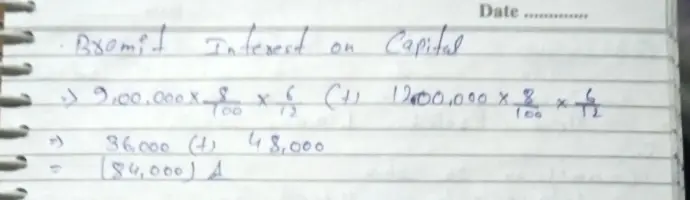 Date ............
Bromit Interest on Capital
=> 9,00,000 × 8/100 × 6/12 (+) 1200,000 × 8/100 × 6/12
=> 36,000 (+) 48,000
= (84,000)